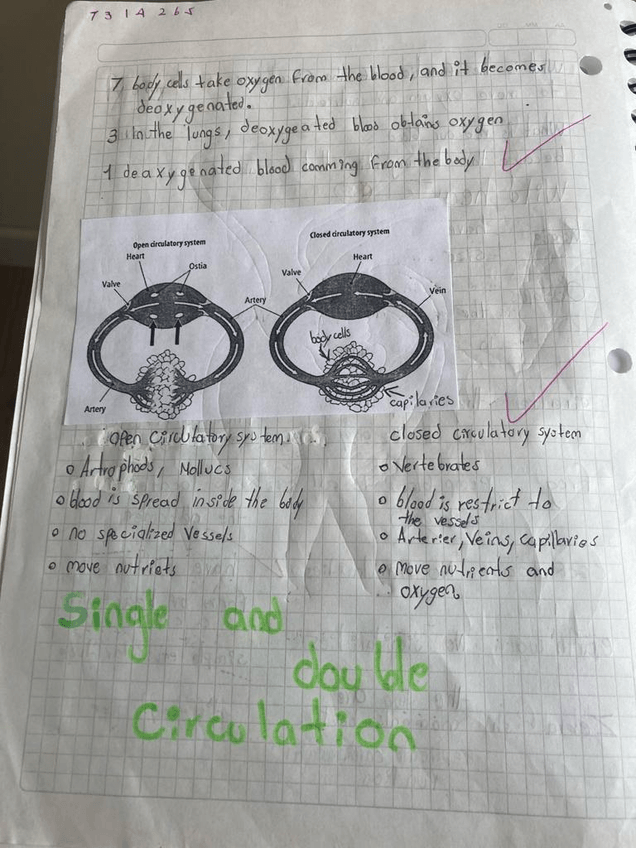 7 3 1 4 2 6 5
7 body cells take oxygen from the blood, and it becomes
deoxygenated.
3 In the lungs, deoxygeated blood obtains oxygen
1 deaxygenated blood comming from the body
Open circulatory system
Heart
Ostia
Valve
Artery
Closed circulatory system
Heart
Valve
Vein
Artery
body cells
capilaries
open circulatory system
o Artrophods, Mollucs
o blood is spread inside the body
o no specialized vessels
o move nutriets
closed circulatory system
o Vertebrates
o blood is restrict to
the vessels
o Arterier, Veins, capillaries
o move nutrients and
oxygen
Single and
double
Circulation